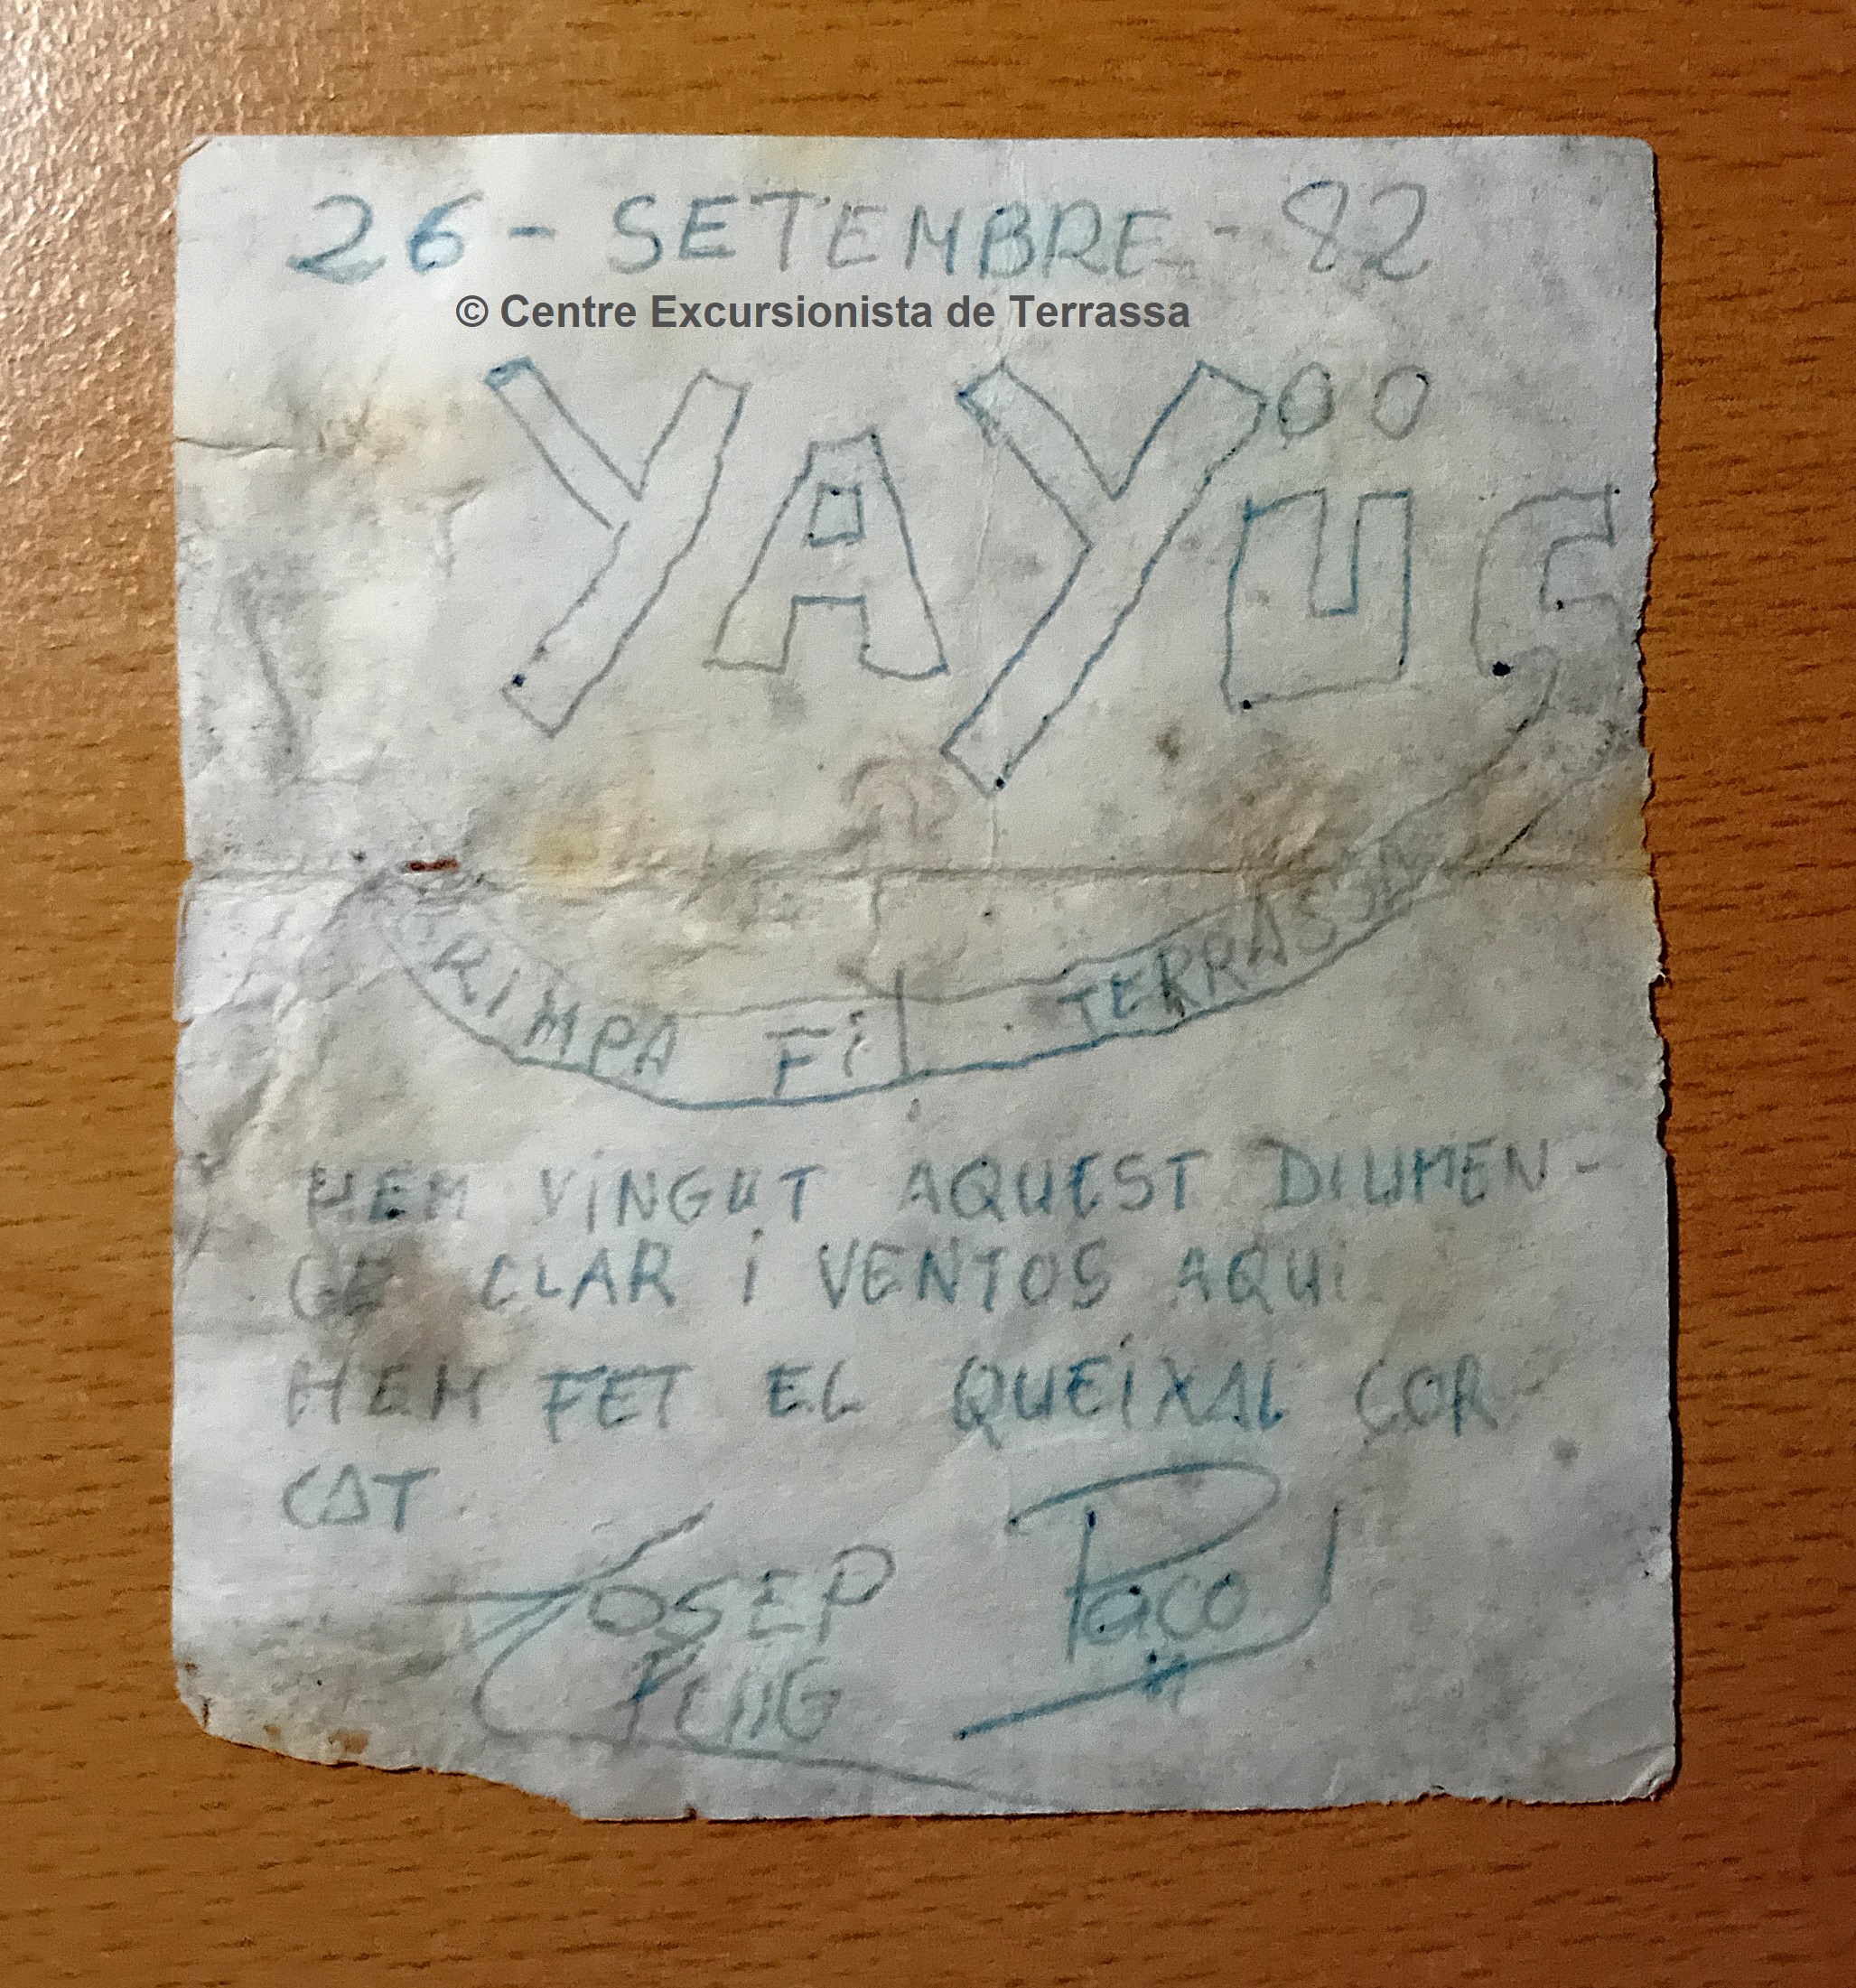 26 - SETEMBRE - 82
© Centre Excursionista de Terrassa
YAYÜS
KIMPA Fi TERRASSA
HEM ViNGUT AQUEST DIUMEN-
GE CLAR i VENTOS AQUi
HEM FET EL QUEiXAL COR
CAT.
JOSEP
PUIG
Paco